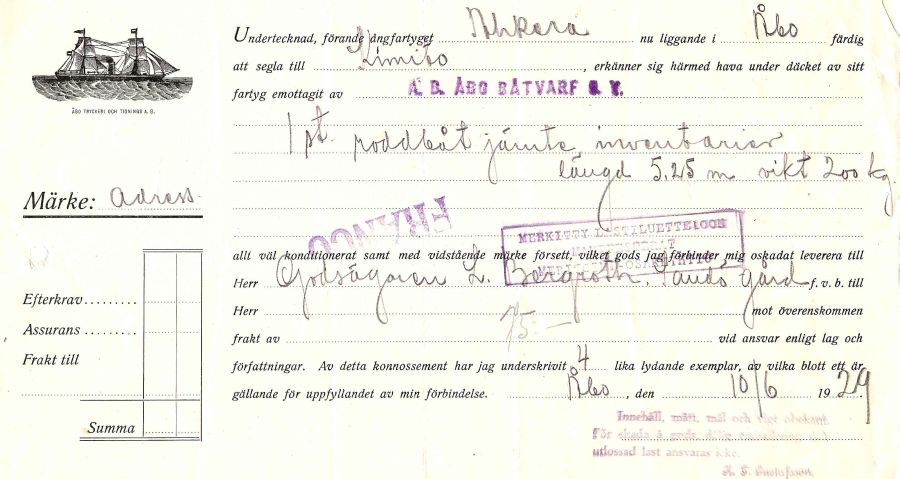 ÅBO TRYCKERI OCH TIDNINGS A. B.
Märke: Adress
Efterkrav
Assurans
Frakt till
Summa
Undertecknad, förande ångfartyget nu liggande i Åbo färdig
att segla till Kimito, erkänner sig härmed hava under däcket av sitt
fartyg emottagit av A. B. ÅBO BÅTVARF O. Y.
1 st. roddbåt jämte inventarier
längd 5.25 m vikt 200 kg.
FRANCO
MERKITTY LASTILUETTELOON
allt väl konditionerat samt med vidstående märke försett, vilket gods jag förbinder mig oskadat leverera till
Herr Godsägaren L. Bergroth, Sandö Gård f. v. b. till
Herr mot överenskommen
frakt av 75:- vid ansvar enligt lag och
författningar. Av detta konnossement har jag underskrivit 4 lika lydande exemplar, av vilka blott ett är
gällande för uppfyllandet av min förbindelse. Åbo, den 10/6 1929
Innehåll, mått, mål och vigt obekant.
För skada å gods
utlossad last ansvaras icke.
Gustafsson